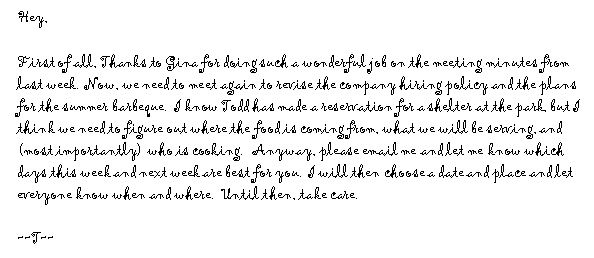 Hey,
First of all, Thanks to Gina for doing such a wonderful job on the meeting minutes from
last week. Now, we need to meet again to revise the company hiring policy and the plans
for the summer barbeque. I know Todd has made a reservation for a shelter at the park, but I
think we need to figure out where the food is coming from, what we will be serving, and
(most importantly) who is cooking. Anyway, please email me and let me know which
days this week and next week are best for you. I will then choose a date and place and let
everyone know when and where. Until then, take care.
--T--